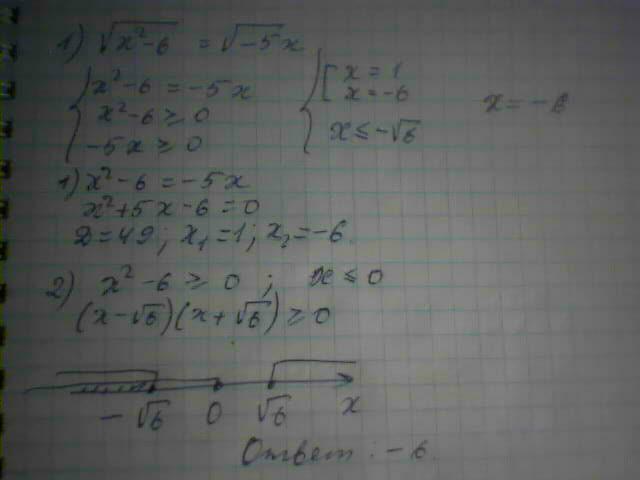 1) √(x²-6) = √(-5)x
{ x²-6 = -5x
x²-6 ≥ 0
-5x ≥ 0
{ [ x = 1
x = -6
x ≤ -√6
x = -6
1) x²-6 = -5x
x²+5x-6=0
D=49; x₁=1; x₂=-6.
2) x²-6 ≥ 0; x ≤ 0
(x-√6)(x+√6) ≥ 0
-√6 0 √6 x
Ответ: -6.